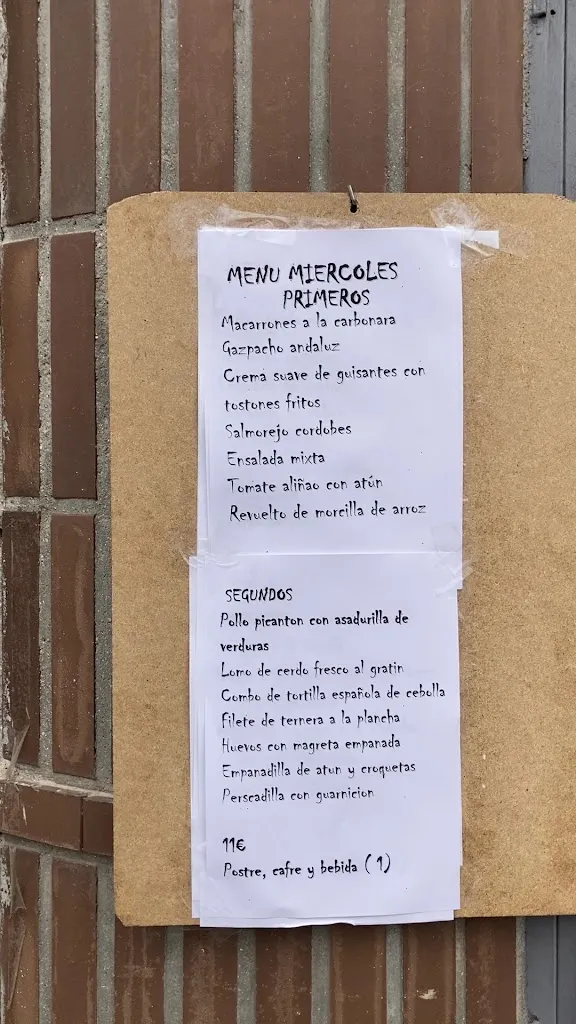 MENU MIERCOLES
PRIMEROS
Macarrones a la carbonara
Gazpacho andaluz
Crema suave de guisantes con
tostones fritos
Salmorejo cordobes
Ensalada mixta
Tomate aliñao con atún
Revuelto de morcilla de arroz
SEGUNDOS
Pollo picanton con asadurilla de
verduras
Lomo de cerdo fresco al gratin
Combo de tortilla española de cebolla
Filete de ternera a la plancha
Huevos con magreta empanada
Empanadilla de atun y croquetas
Perscadilla con guarnicion
11€
Postre, cafre y bebida ( 1)